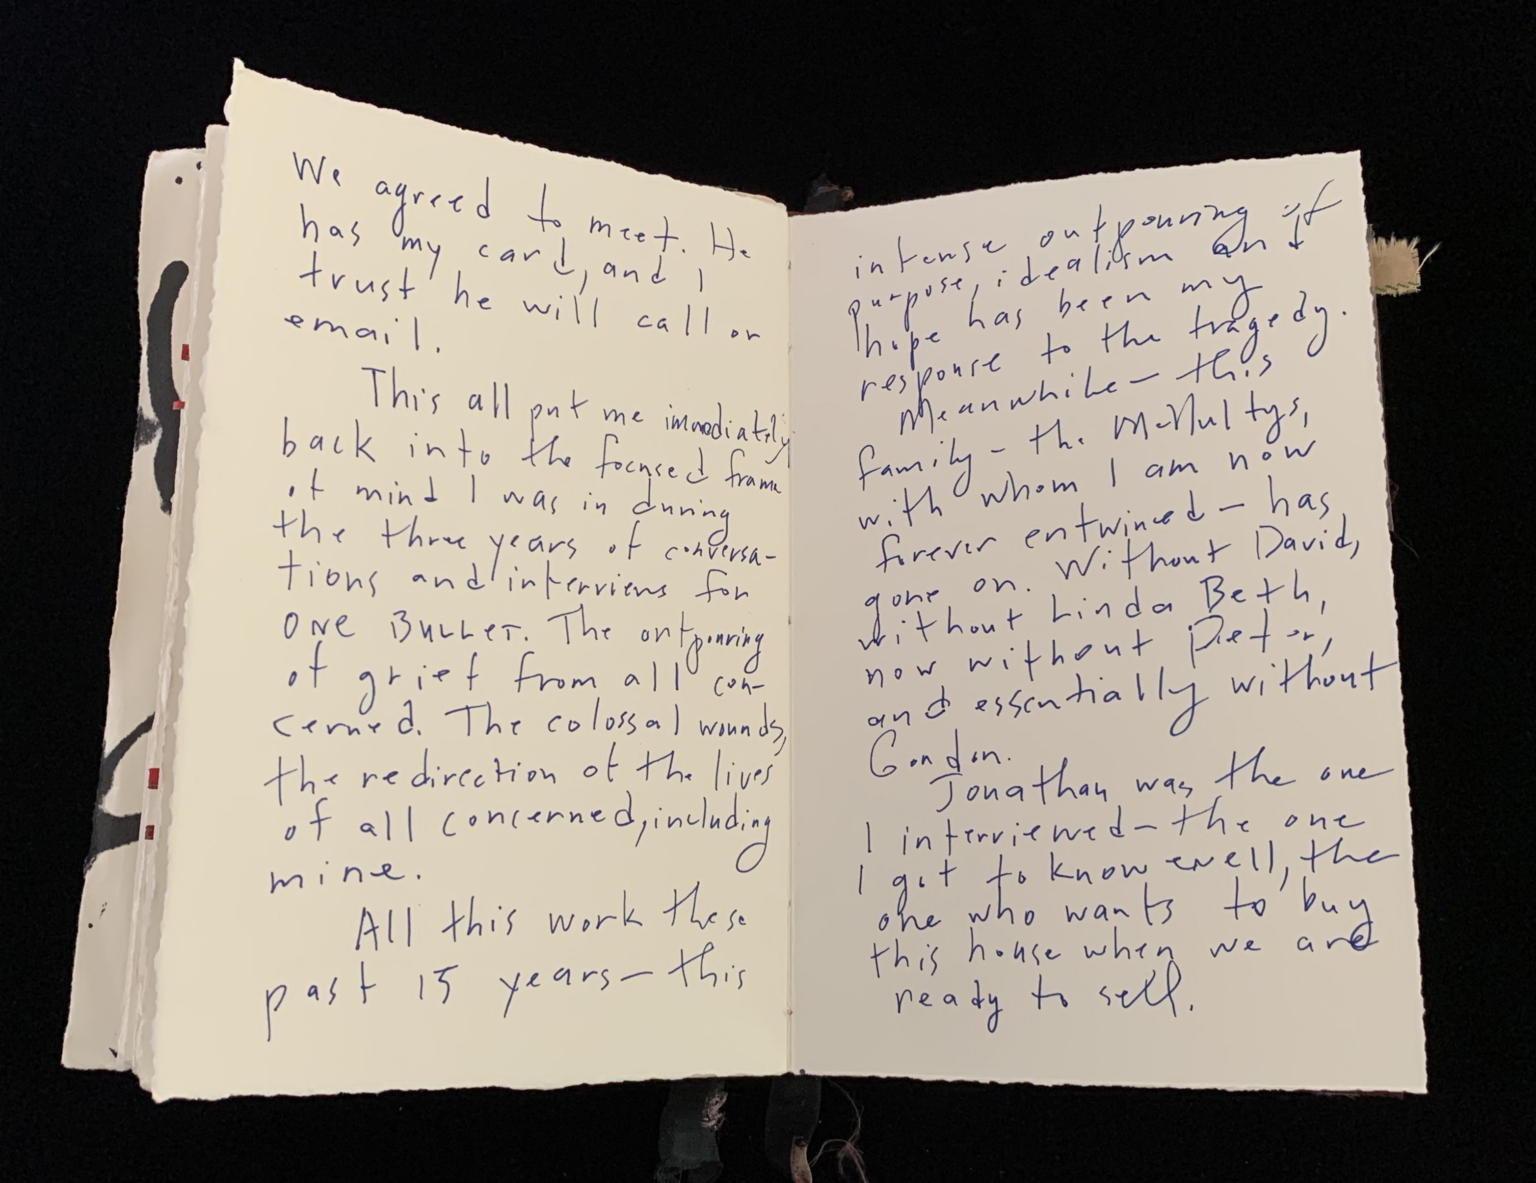 We agreed to meet. He
has my card, and I
trust he will call or
email.
This all put me immediately
back into the focused frame
of mind I was in during
the three years of conversa-
tions and interviews for
ONE BULLET. The outpouring
of grief from all con-
cerned. The colossal wounds,
the redirection of the lives
of all concerned, including
mine.
All this work these
past 15 years – this
intense outpouring of
purpose, idealism and
hope has been my
response to the tragedy.
Meanwhile – this
family – the McNultys,
with whom I am now
forever entwined – has
gone on. Without David,
without Linda Beth,
now without Peter,
and essentially without
Gordon.
Jonathan was the one
I interviewed – the one
I got to know well, the
one who wants to buy
this house when we are
ready to sell.